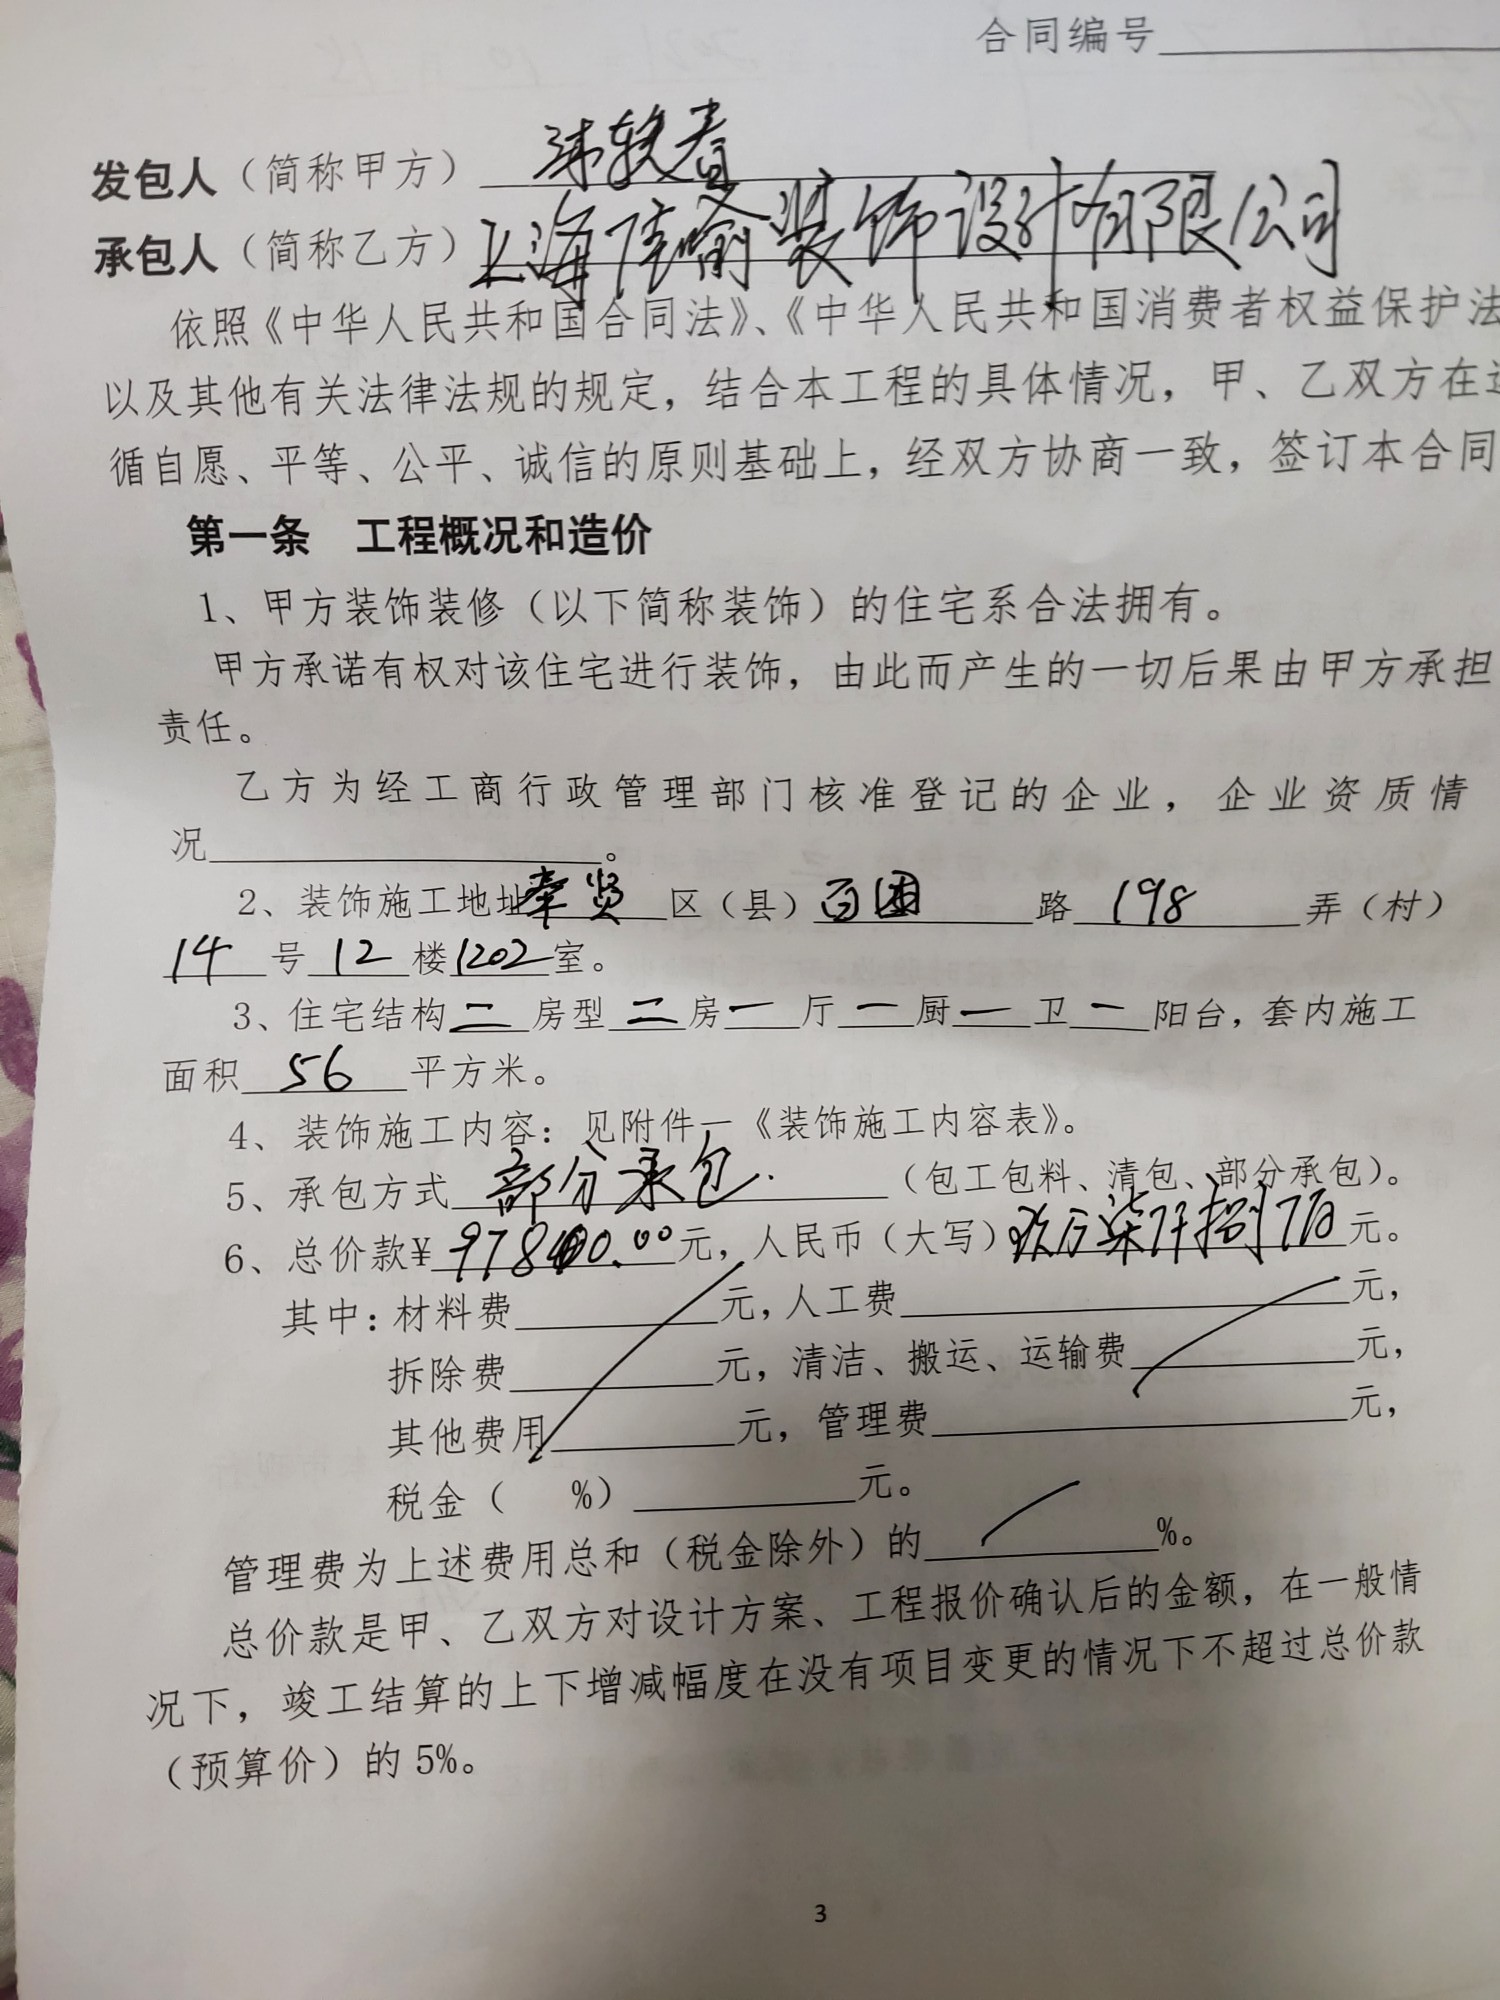 合同编号
发包人（简称甲方）
承包人（简称乙方）上海 装饰设计有限公司
依照《中华人民共和国合同法》、《中华人民共和国消费者权益保护法
以及其他有关法律法规的规定，结合本工程的具体情况，甲、乙双方在
循自愿、平等、公平、诚信的原则基础上，经双方协商一致，签订本合同
第一条 工程概况和造价
1、甲方装饰装修（以下简称装饰）的住宅系合法拥有。
甲方承诺有权对该住宅进行装饰，由此而产生的一切后果由甲方承担
责任。
乙方为经工商行政管理部门核准登记的企业，企业资质情
况。
2、装饰施工地址奉贤区（县）路198弄（村）
14号12楼1202室。
3、住宅结构二房型二房一厅一厨一卫一阳台，套内施工
面积56平方米。
4、装饰施工内容：见附件一《装饰施工内容表》。
5、承包方式部分承包（包工包料、清包、部分承包）。
6、总价款¥元，人民币（大写）玖万柒仟捌佰元。
其中：材料费元，人工费元，
拆除费元，清洁、搬运、运输费元，
其他费用元，管理费元，
税金（ %）元。
管理费为上述费用总和（税金除外）的%。
总价款是甲、乙双方对设计方案、工程报价确认后的金额，在一般情
况下，竣工结算的上下增减幅度在没有项目变更的情况下不超过总价款
（预算价）的5%。
3